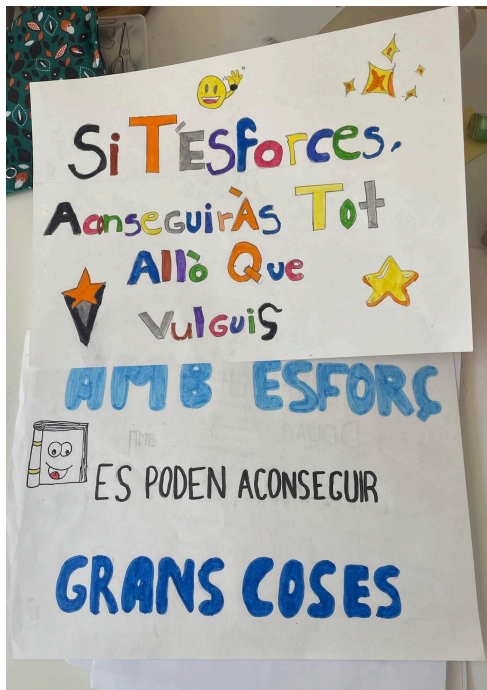 Si T'Esforces,
Aconseguiràs Tot
Allò Que
Vulguis
AMB ESFORÇ
ES PODEN ACONSEGUIR
GRANS COSES